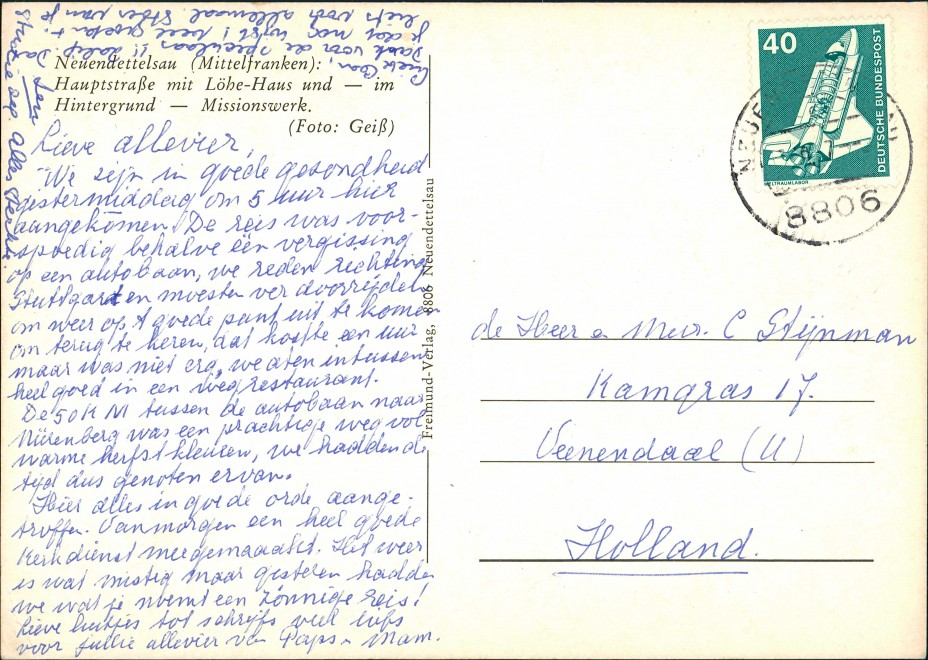 Neuendettelsau (Mittelfranken):
Hauptstraße mit Löhe-Haus und — im
Hintergrund — Missionswerk.
(Foto: Geiß)
Lieve allevier,
We zijn in goede gesondheid
gistermiddag om 5 uur hier
aangekomen. De reis was voor-
spoedig behalve één vergissing
op een autobaan, we reden richting
Stuttgart en moesten ver doorrijden
om weer op 't goede punt uit te komen
om terug te keren, dat kostte een uur
maar was niet erg, we aten intussen
heel goed in een wegrestaurant.
De 50 KM tussen de autobaan naar
Nürenberg was een prachtige weg vol
warme herfstkleuren, we hadden de
tijd dus genoten ervan.
Hier alles in goede orde aange-
troffen. Vanmorgen een heel goede
kerkdienst meegemaakt. Het weer
is wat mistig maar gisteren hadden
we wat je noemt een zonnige reis!
Lieve luitjes tot schrijfs veel liefs
voor jullie allevier van Paps n Mam.
Dank voor de speculaas!!
je dat nog wist!
liefs voor allemaal.
Freimund-Verlag, 8806 Neuendettelsau
40
DEUTSCHE BUNDESPOST
WELTRAUMLABOR
8806
de Heer n Mevr. C Stijnman
Kamgras 17.
Veenendaal (U)
Holland.